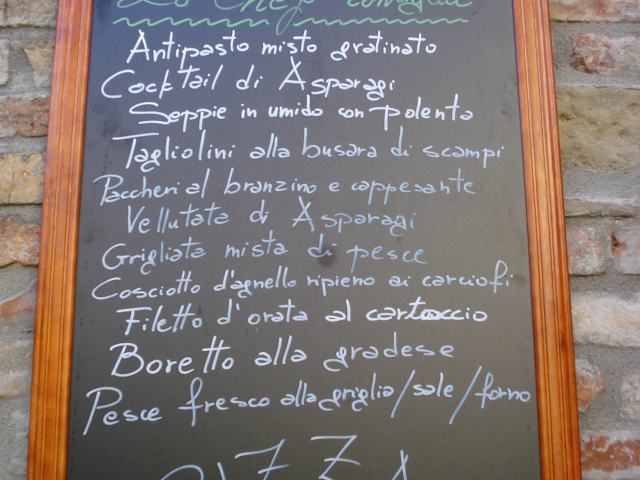 Lo Chef consiglia
Antipasto misto gratinato
Cocktail di Asparagi
Seppie in umido con polenta
Tagliolini alla busara di scampi
Paccheri al branzino e cappesante
Vellutata di Asparagi
Grigliata mista di pesce
Cosciotto d'agnello ripieno ai carciofi
Filetto d'orata al cartoccio
Boretto alla gradese
Pesce fresco alla griglia/sale/forno